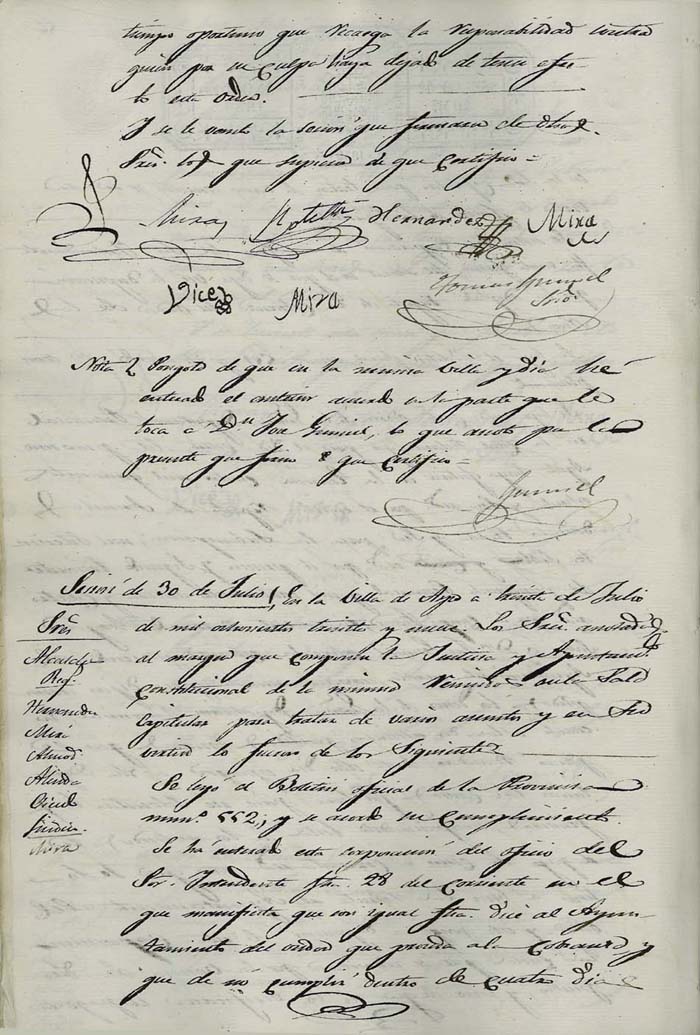 tiempo oportuno que recaiga la responsabilidad contra
quien por su culpa haya dejado de tener efec-
to esta orden.
Y se levantó la sesión que firmaron de dhos
Sres. los que supieron de que certifico =
Mira Hernandez Mira
Vice Mira
Srio.
Nota Pongo de que en la misma Villa y dia hé
enterado el anterior acuerdo en la parte que le
toca a Dn. José Gumiel, lo que anoto por la
presente que firmo y que certifico =
Gumiel
Sesion de 30 de Julio En la Villa de Aspe a treinta de Julio
Sres. de mil ochocientos treinta y nueve: Los Sres. anotados
Alcalde al margen que componen la Justicia y Ayuntam.
Reg. constitucional de la misma reunidos en la Sala
Hernandez Capitular para tratar de varios asuntos y en su
Mira virtud lo fueron de los siguientes
Almod.
Se leyó el Boletin oficial de la Provincia
numº 552, y se acordó su cumplimiento.
Sindico.
Mira Se há enterado esta corporación del oficio del
Sor. Intendente fha. 28 del corriente en el
que manifiesta que con igual fha. dice al Ayun-
tamiento que proceda a la cobranza y
que de nó cumplir dentro de cuatro dias